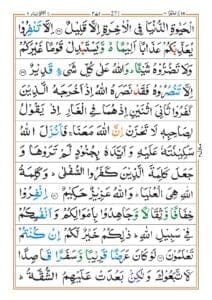 الْحَيٰوةِ الدُّنْيَا فِي الْاٰخِرَةِ اِلَّا قَلِيْلٌ ۝ اِلَّا تَنْفِرُوْا
يُعَذِّبْكُمْ عَذَابًا اَلِيْمًا ۙ وَّيَسْتَبْدِلْ قَوْمًا غَيْرَكُمْ
وَلَا تَضُرُّوْهُ شَيْـًٔا ؕ وَاللّٰهُ عَلٰى كُلِّ شَيْءٍ قَدِيْرٌ ۝
اِلَّا تَنْصُرُوْهُ فَقَدْ نَصَرَهُ اللّٰهُ اِذْ اَخْرَجَهُ الَّذِيْنَ
كَفَرُوْا ثَانِيَ اثْنَيْنِ اِذْ هُمَا فِي الْغَارِ اِذْ يَقُوْلُ
لِصَاحِبِهٖ لَا تَحْزَنْ اِنَّ اللّٰهَ مَعَنَا ۚ فَاَنْزَلَ اللّٰهُ
سَكِيْنَتَهٗ عَلَيْهِ وَاَيَّدَهٗ بِجُنُوْدٍ لَّمْ تَرَوْهَا وَ
جَعَلَ كَلِمَةَ الَّذِيْنَ كَفَرُوا السُّفْلٰى ؕ وَكَلِمَةُ
اللّٰهِ هِيَ الْعُلْيَا ؕ وَاللّٰهُ عَزِيْزٌ حَكِيْمٌ ۝ اِنْفِرُوْا
خِفَافًا وَّثِقَالًا وَّجَاهِدُوْا بِاَمْوَالِكُمْ وَاَنْفُسِكُمْ
فِيْ سَبِيْلِ اللّٰهِ ؕ ذٰلِكُمْ خَيْرٌ لَّكُمْ اِنْ كُنْتُمْ
تَعْلَمُوْنَ ۝ لَوْ كَانَ عَرَضًا قَرِيْبًا وَّسَفَرًا قَاصِدًا
لَّاتَّبَعُوْكَ وَلٰكِنْۢ بَعُدَتْ عَلَيْهِمُ الشُّقَّةُ ؕ